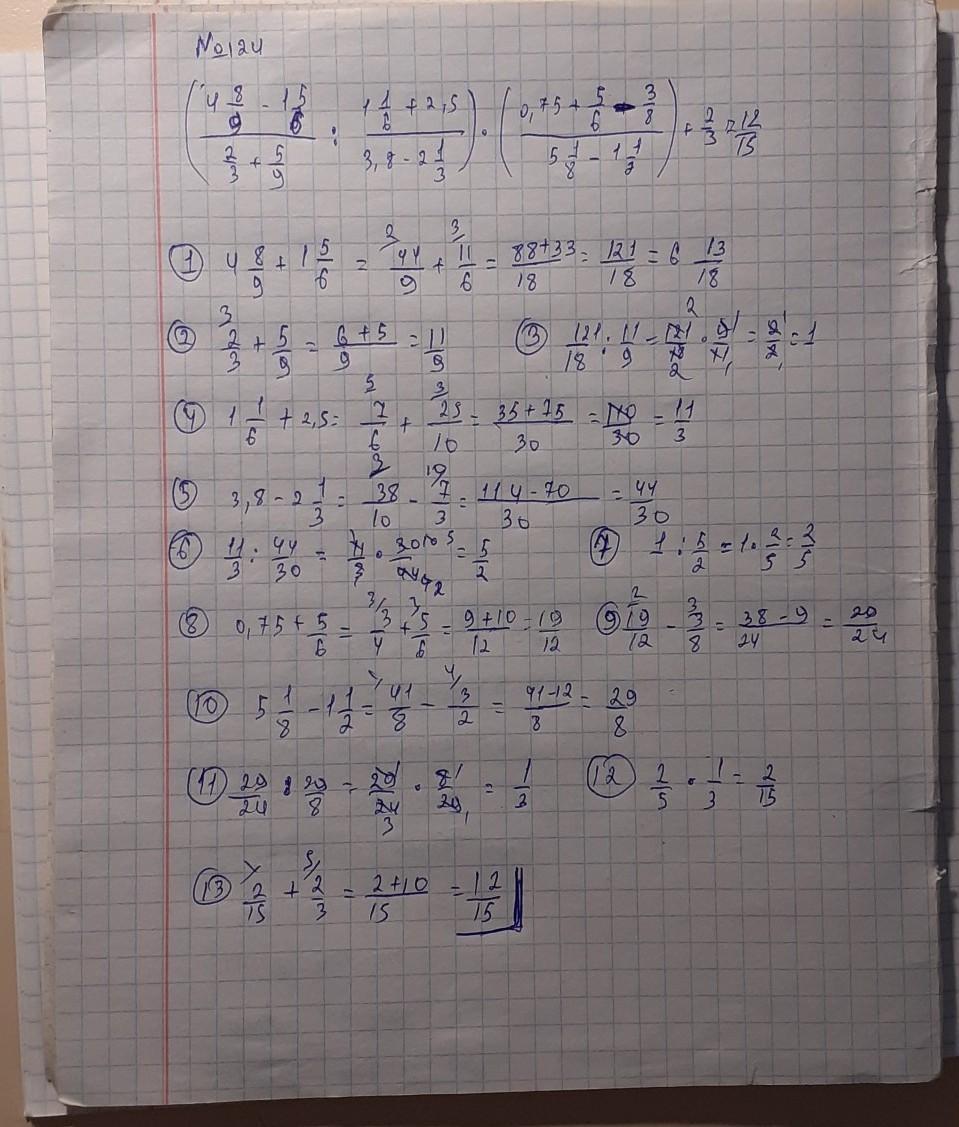 №124
((4 8/9 - 1 5/6)/(2/3 + 5/9) : (1 1/6 + 2,5)/(3,8 - 2 1/3)) · ((0,75 + 5/6 - 3/8)/(5 1/8 - 1 1/2)) + 2/3 = 12/15
① 4 8/9 + 1 5/6 = 44/9 + 11/6 = 88+33/18 = 121/18 = 6 13/18
② 2/3 + 5/9 = 6+5/9 = 11/9 ③ 121/18 : 11/9 = 121/18 · 9/11 = 2/2 = 1
④ 1 1/6 + 2,5 = 7/6 + 25/10 = 35+75/30 = 110/30 = 11/3
⑤ 3,8 - 2 1/3 = 38/10 - 7/3 = 114-70/30 = 44/30
⑥ 11/3 : 44/30 = 11/3 · 30/44 = 5/2 ⑦ 1 : 5/2 = 1 · 2/5 = 2/5
⑧ 0,75 + 5/6 = 3/4 + 5/6 = 9+10/12 = 19/12 ⑨ 19/12 - 3/8 = 38-9/24 = 29/24
⑩ 5 1/8 - 1 1/2 = 41/8 - 3/2 = 41-12/8 = 29/8
⑪ 29/24 : 29/8 = 29/24 · 8/29 = 1/3 ⑫ 2/5 · 1/3 = 2/15
⑬ 2/15 + 2/3 = 2+10/15 = 12/15